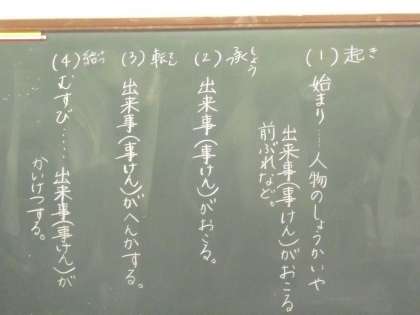 (1) 起き
始まり……人物のしょうかいや
出来事(事けん)がおこる
前ぶれなど。
(2) 承しょう
出来事(事けん)がおこる。
(3) 転てん
出来事(事けん)がへんかする。
(4) 結けつ
むすび……出来事(事けん)が
かいけつする。